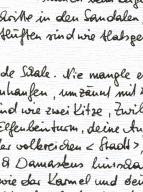 dritte in den Sandalen
Hüften sind wie Halsge
de Schale. Nie mangle e
nhaufen, umzäunt mit
nd wie zwei Kitze, Zwil
Elfenbeinturm, deine Au
der volkreichen <Stadt>,
Damaskus hinscha
wie der Karmel und dei